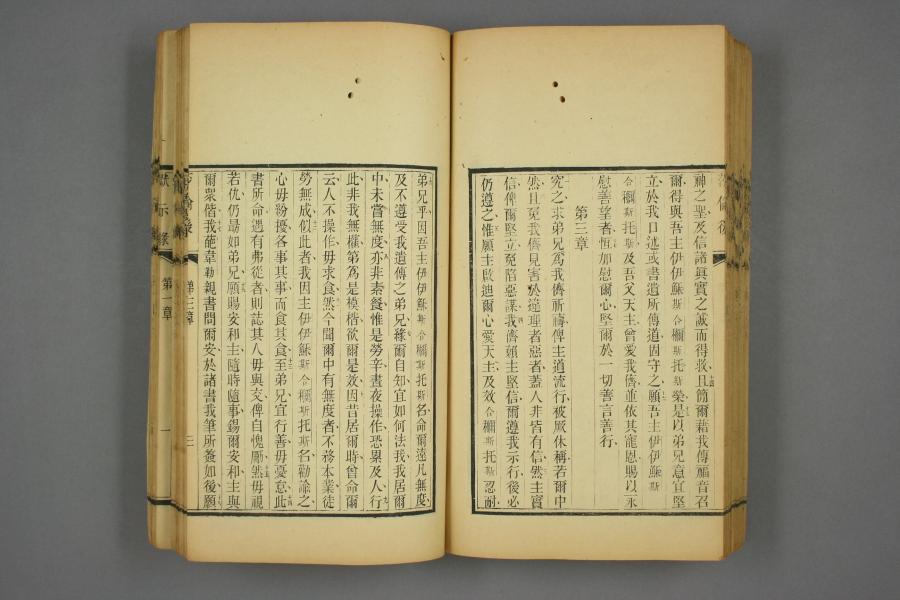 神之聖及信諸眞實之誠而得救且簡爾藉我傳福音召
爾得與吾主伊伊穌斯合檷斯托斯榮是以弟兄意宜堅
立於我口述或書遺所傳道固守之願吾主伊伊穌斯
合檷斯托斯及吾父天主曾愛我儕並依其寵恩賜以永
慰善望者恆加慰爾心堅爾於一切善言善行
第三章
究之求弟兄爲我儕祈禱俾主道流行被厥休稱若爾中
然且免我儕見害於違理者惡者蓋人非皆有信然主實
信俾爾堅立免陷惡謀我儕賴主堅信爾遵我示行後必
仍遵之惟願主啟迪爾心愛天主及效合檷斯托斯忍耐
弟兄乎因吾主伊伊穌斯合檷斯托斯名命爾遠凡無度
及不遵受我遺傳之弟兄緣爾自知宜如何法我我居爾
中未嘗無度亦非素餐惟是勞辛晝夜操作恐累及人行
此非我無權第爲是模楷欲爾是效因昔居爾時曾命爾
云人不操作毋求食然今聞爾中有無度者不務本業徒
勞無成似此者我因主伊伊穌斯合檷斯托斯名勸諭之
心毋紛擾各事其事而食其食至弟兄宜行善毋憂怠此
書所命遇有弗從者則誌其人毋與交俾自愧厲然毋視
若仇仍勗如弟兄願賜安和主隨時隨事錫爾安和主與
爾衆偕我葩韋勒親書問爾安於諸書我筆所簽如後願
第三章
三
默示錄
第一章
一